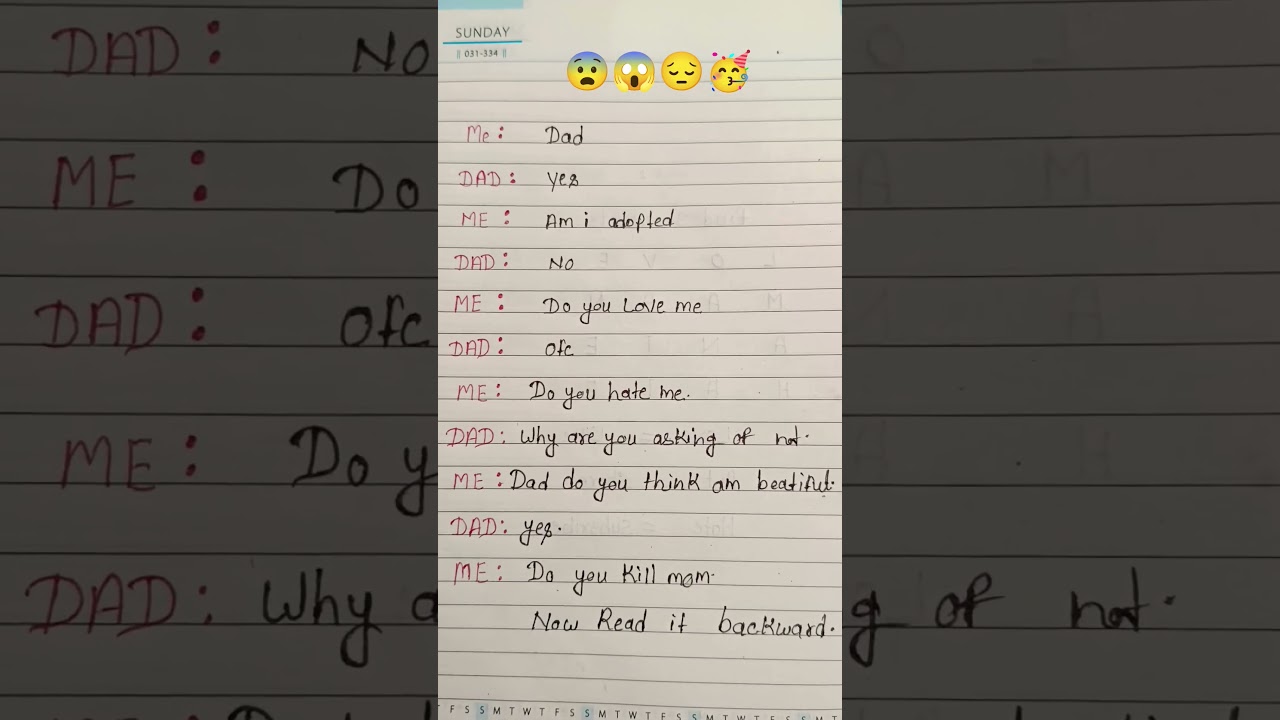 SUNDAY
|| 031-334 ||
Me: Dad
DAD: yes
ME: Am i adopted
DAD: NO
ME: Do you Love me
DAD: Ofc
ME: Do you hate me.
DAD: Why are you asking of not.
ME: Dad do you think am beatiful.
DAD: yes.
ME: Do you Kill mom.
Now Read it backward.
F S S M T W T F S S M T W T F S S M T W T F S S M T
DAD: NO
ME: Do
DAD: Ofc
ME: Do y
DAD: Why a
g of not.